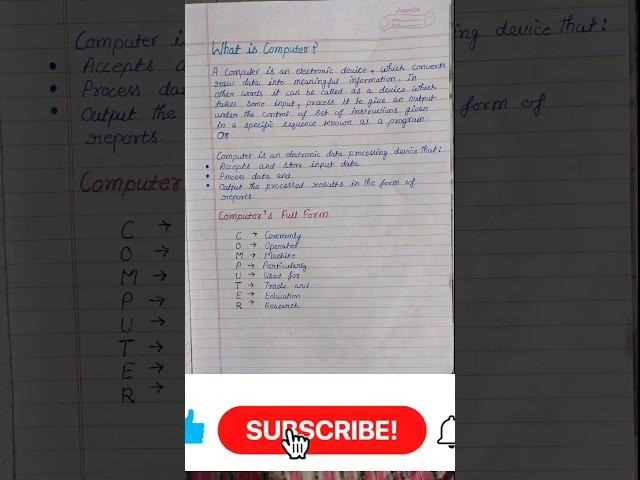 What is Computer?
A Computer is an electronic device, which converts
raw data into meaningful information. In
other words it can be called as a device which
takes some input, process it to give an output
under the control of set of instructions given
in a specific sequence known as a program.
Or
Computer is an electronic data processing device that:
• Accepts and store input data
• Process data and
• Output the processed results in the form of
reports.
Computer's Full Form
C → Commonly
O → Operated
M → Machine
P → Particularly
U → Used for
T → Trade and
E → Education
R → Research
SUBSCRIBE!
Computer i
• Accepts a
• Process da
• Output the
reports.
Computer
C →
O →
M →
P →
U →
T →
E →
R →
ing device that:
form of